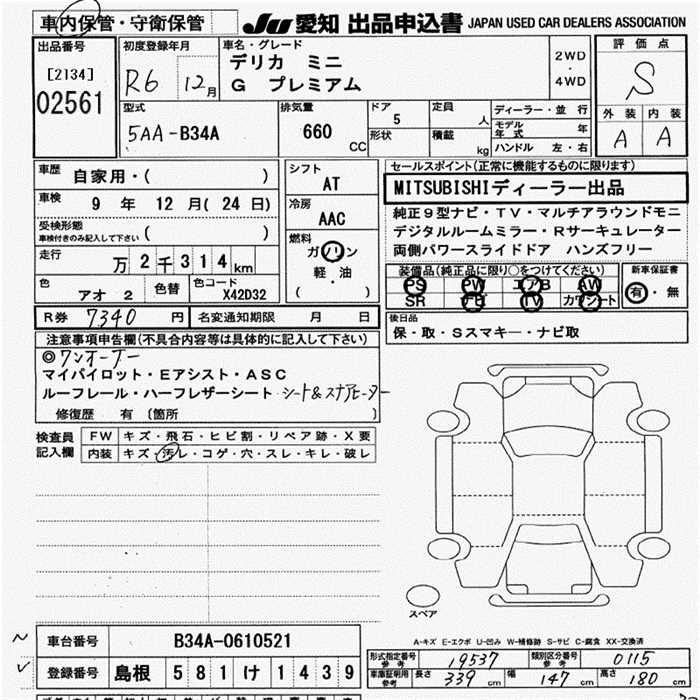 車内保管・守衛保管 JU 愛知 出品申込書 JAPAN USED CAR DEALERS ASSOCIATION
出品番号
[2134]
02561
初度登録年月
R6 12月
車名・グレード
デリカ ミニ
G プレミアム
2WD
・
4WD
評価点
S
外装 内装
A A
型式
5AA-B34A
排気量
660
CC
ドア
5
形状
定員
人
積載
kg
ディーラー・並行
モデル年式 年
ハンドル 左・右
車歴 自家用・( )
車検 9 年 12 月 ( 24 日)
受検形態
車検付きのみ記入して下さい ( )
走行 万 2 千 3 1 4 km
色 アオ 2 色替 色コード X42D32
シフト
AT
冷房
AAC
燃料
ガソリン
軽・油
( )
セールスポイント(正常に機能するものに限ります)
MITSUBISHIディーラー出品
純正9型ナビ・TV・マルチアラウンドモニ
デジタルルームミラー・Rサーキュレーター
両側パワースライドドア ハンズフリー
装備品(純正品に限り○をつけてください)
PS PW エアB AW
SR ナビ TV カワシート
新車保証書
有・無
R券 7340 円 名変通知期限 月 日
後日品
保・取・Sスマキー・ナビ取
注意事項申告欄(不具合内容等は具体的に記入して下さい)
◎ワンオーナー
マイパイロット・Eアシスト・ASC
ルーフレール・ハーフレザーシート・シート&ステアヒーター
修復歴 有 〔箇所 〕
検査員
記入欄
FW キズ・飛石・ヒビ割・リペア跡・X要
内装 キズ・汚レ・コゲ・穴・スレ・キレ・破レ
スペア
A-キズ E-エクボ U-凹み W-補修跡 S-サビ C-腐食 XX-交換済
車台番号 B34A-0610521
登録番号 島根 581 け 1439
形式指定番号
参考 19537
類別区分番号
参考 0115
車庫証明用
参考 長さ 339 cm 幅 147 cm 高さ 180 cm